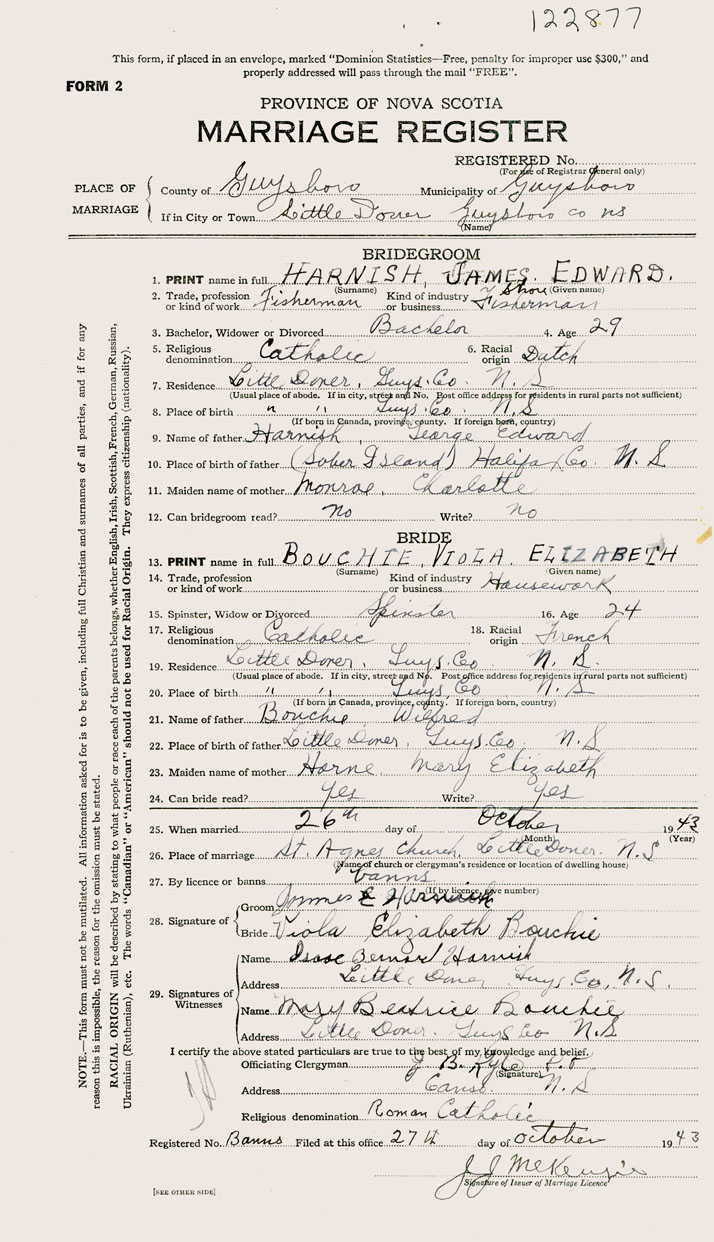 122877
This form, if placed in an envelope, marked "Dominion Statistics—Free, penalty for improper use $300," and
properly addressed will pass through the mail "FREE".
FORM 2
PROVINCE OF NOVA SCOTIA
MARRIAGE REGISTER
REGISTERED No.
(For use of Registrar General only)
PLACE OF MARRIAGE
County of Guysboro Municipality of Guysboro
If in City or Town Little Dover Guysboro co ns
(Name)
BRIDEGROOM
1. PRINT name in full HARNISH, JAMES. EDWARD.
(Surname) (Given name)
2. Trade, profession or kind of work Fisherman Kind of industry or business Shore Fisherman
3. Bachelor, Widower or Divorced Bachelor 4. Age 29
5. Religious denomination Catholic 6. Racial origin Dutch
7. Residence Little Dover, Guys. Co. N. S
(Usual place of abode. If in city, street and No. Post office address for residents in rural parts not sufficient)
8. Place of birth " " Guys. Co. N. S
(If born in Canada, province, county. If foreign born, country)
9. Name of father Harnish, George Edward
10. Place of birth of father (Sober Island) Halifax Co. N. S
11. Maiden name of mother Monroe, Charlotte
12. Can bridegroom read? No Write? no
BRIDE
13. PRINT name in full BOUCHIE, VIOLA. ELIZABETH
(Surname) (Given name)
14. Trade, profession or kind of work Kind of industry or business Housework
15. Spinster, Widow or Divorced Spinster 16. Age 24
17. Religious denomination Catholic 18. Racial origin French
19. Residence Little Dover, Guys. Co N. S.
(Usual place of abode. If in city, street and No. Post office address for residents in rural parts not sufficient)
20. Place of birth " " Guys, Co N. S
(If born in Canada, province, county. If foreign born, country)
21. Name of father Bouchie Wilfred
22. Place of birth of father Little Dover, Guys. Co. N. S
23. Maiden name of mother Horne Mary Elizabeth
24. Can bride read? Yes Write? Yes
25. When married 26th day of October 1943
(Month) (Year)
26. Place of marriage St. Agnes Church, Little Dover. N. S
(Name of church or clergyman's residence or location of dwelling house)
27. By licence or banns banns
(If by licence, give number)
28. Signature of
Groom James E Harnish
Bride Viola Elizabeth Bouchie
29. Signatures of Witnesses
Name Isaac Bernard Harnish
Address Little Dover Guys. Co, N. S.
Name Mary Beatrice Bouchie
Address Little Dover. Guys Co N. S
I certify the above stated particulars are true to the best of my knowledge and belief.
Officiating Clergyman J. B. Kyte P. P
(Signature)
Address Canso. N. S
Religious denomination Roman Catholic
Registered No. Banns Filed at this office 27th day of October 1943
J J McKenzie
Signature of Issuer of Marriage Licence
[SEE OTHER SIDE]
NOTE.—This form must not be mutilated. All information asked for is to be given, including full Christian and surnames of all parties, and if for any
reason this is impossible, the reason for the omission must be stated.
RACIAL ORIGIN will be described by stating to what people or race each of the parents belongs, whether English, Irish, Scottish, French, German, Russian,
Ukrainian (Ruthenian), etc. The words "Canadian" or "American" should not be used for Racial Origin. They express citizenship (nationality).